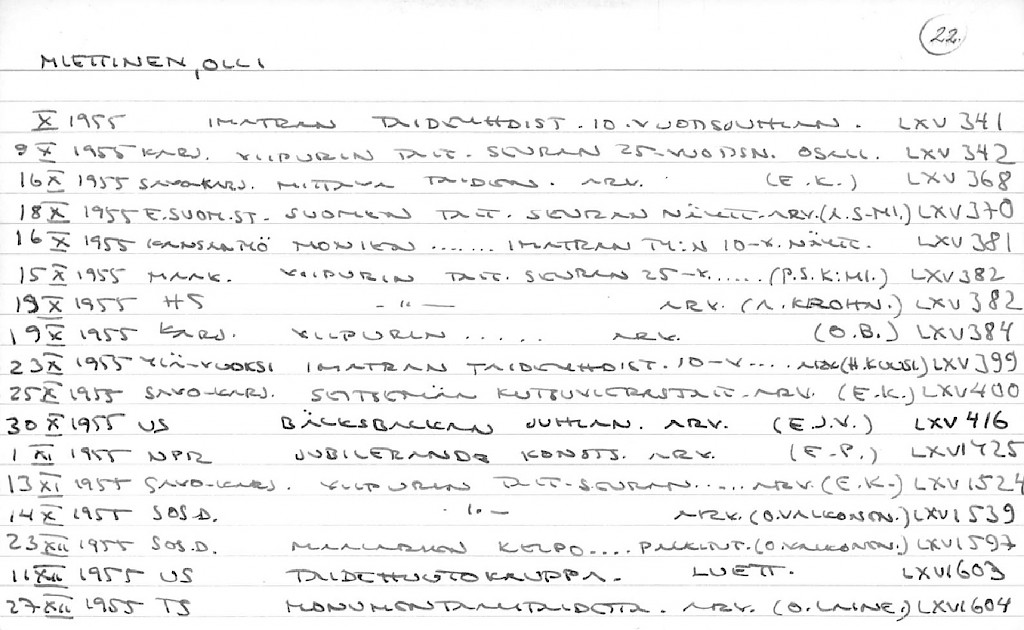 22.
MIETTINEN, OLLI
X 1955 IMATRAN TAIDEYHDIST. 10-VUOTISJUHLAN. LXV 341
9 X 1955 KARJ. VIIPURIN TAIT. SEURAN 25-VUOTISN. OSALL. LXV 342
16 X 1955 SAVO-KARJ. MITTAVA TAIDEN. ARV. (E.K.) LXV 368
18 X 1955 E.SUOM.ST. SUOMEN TAIT. SEURAN NÄYTT. ARV. (A.S-MI.) LXV 370
16 X 1955 KANSANTYÖ MONIEN ...... IMATRAN TY:N 10-V. NÄYTT. LXV 381
15 X 1955 MAAK. VIIPURIN TAIT. SEURAN 25-V...... (P.S.K:MI.) LXV 382
19 X 1955 HS - " - ARV. (A. KROHN.) LXV 382
19 X 1955 KARJ. VIIPURIN ..... ARV. (O.B.) LXV 384
23 X 1955 YLÄ-VUOKSI IMATRAN TAIDEYHDIST. 10-V.... ARV. (H. KUUSI.) LXV 399
25 X 1955 SAVO-KARJ. SEITSEMÄN KUTSUVIERASTAIT. ARV. (E.K.) LXV 400
30 X 1955 US BÄCKSBACKAN JUHLAN. ARV. (E.J.V.) LXV 416
1 XI 1955 NPR JUBILERANDE KONSTS. ARV. (E-P.) LXVI 425
13 XI 1955 SAVO-KARJ. VIIPURIN TAIT-SEURAN ..... ARV. (E.K-) LXVI 524
14 X 1955 SOS.D. - " - ARV. (O. VALKONEN.) LXVI 539
23 XII 1955 SOS.D. MAALARIEN KELPO .... PALKINT. (O. VALKONEN.) LXVI 597
11 XII 1955 US TAIDEHUUTOKAUPPA. LUETT. LXVI 603
27 XII 1955 TS MONUMENTAALITAIDETTA. ARV. (O. LAINE.) LXVI 604